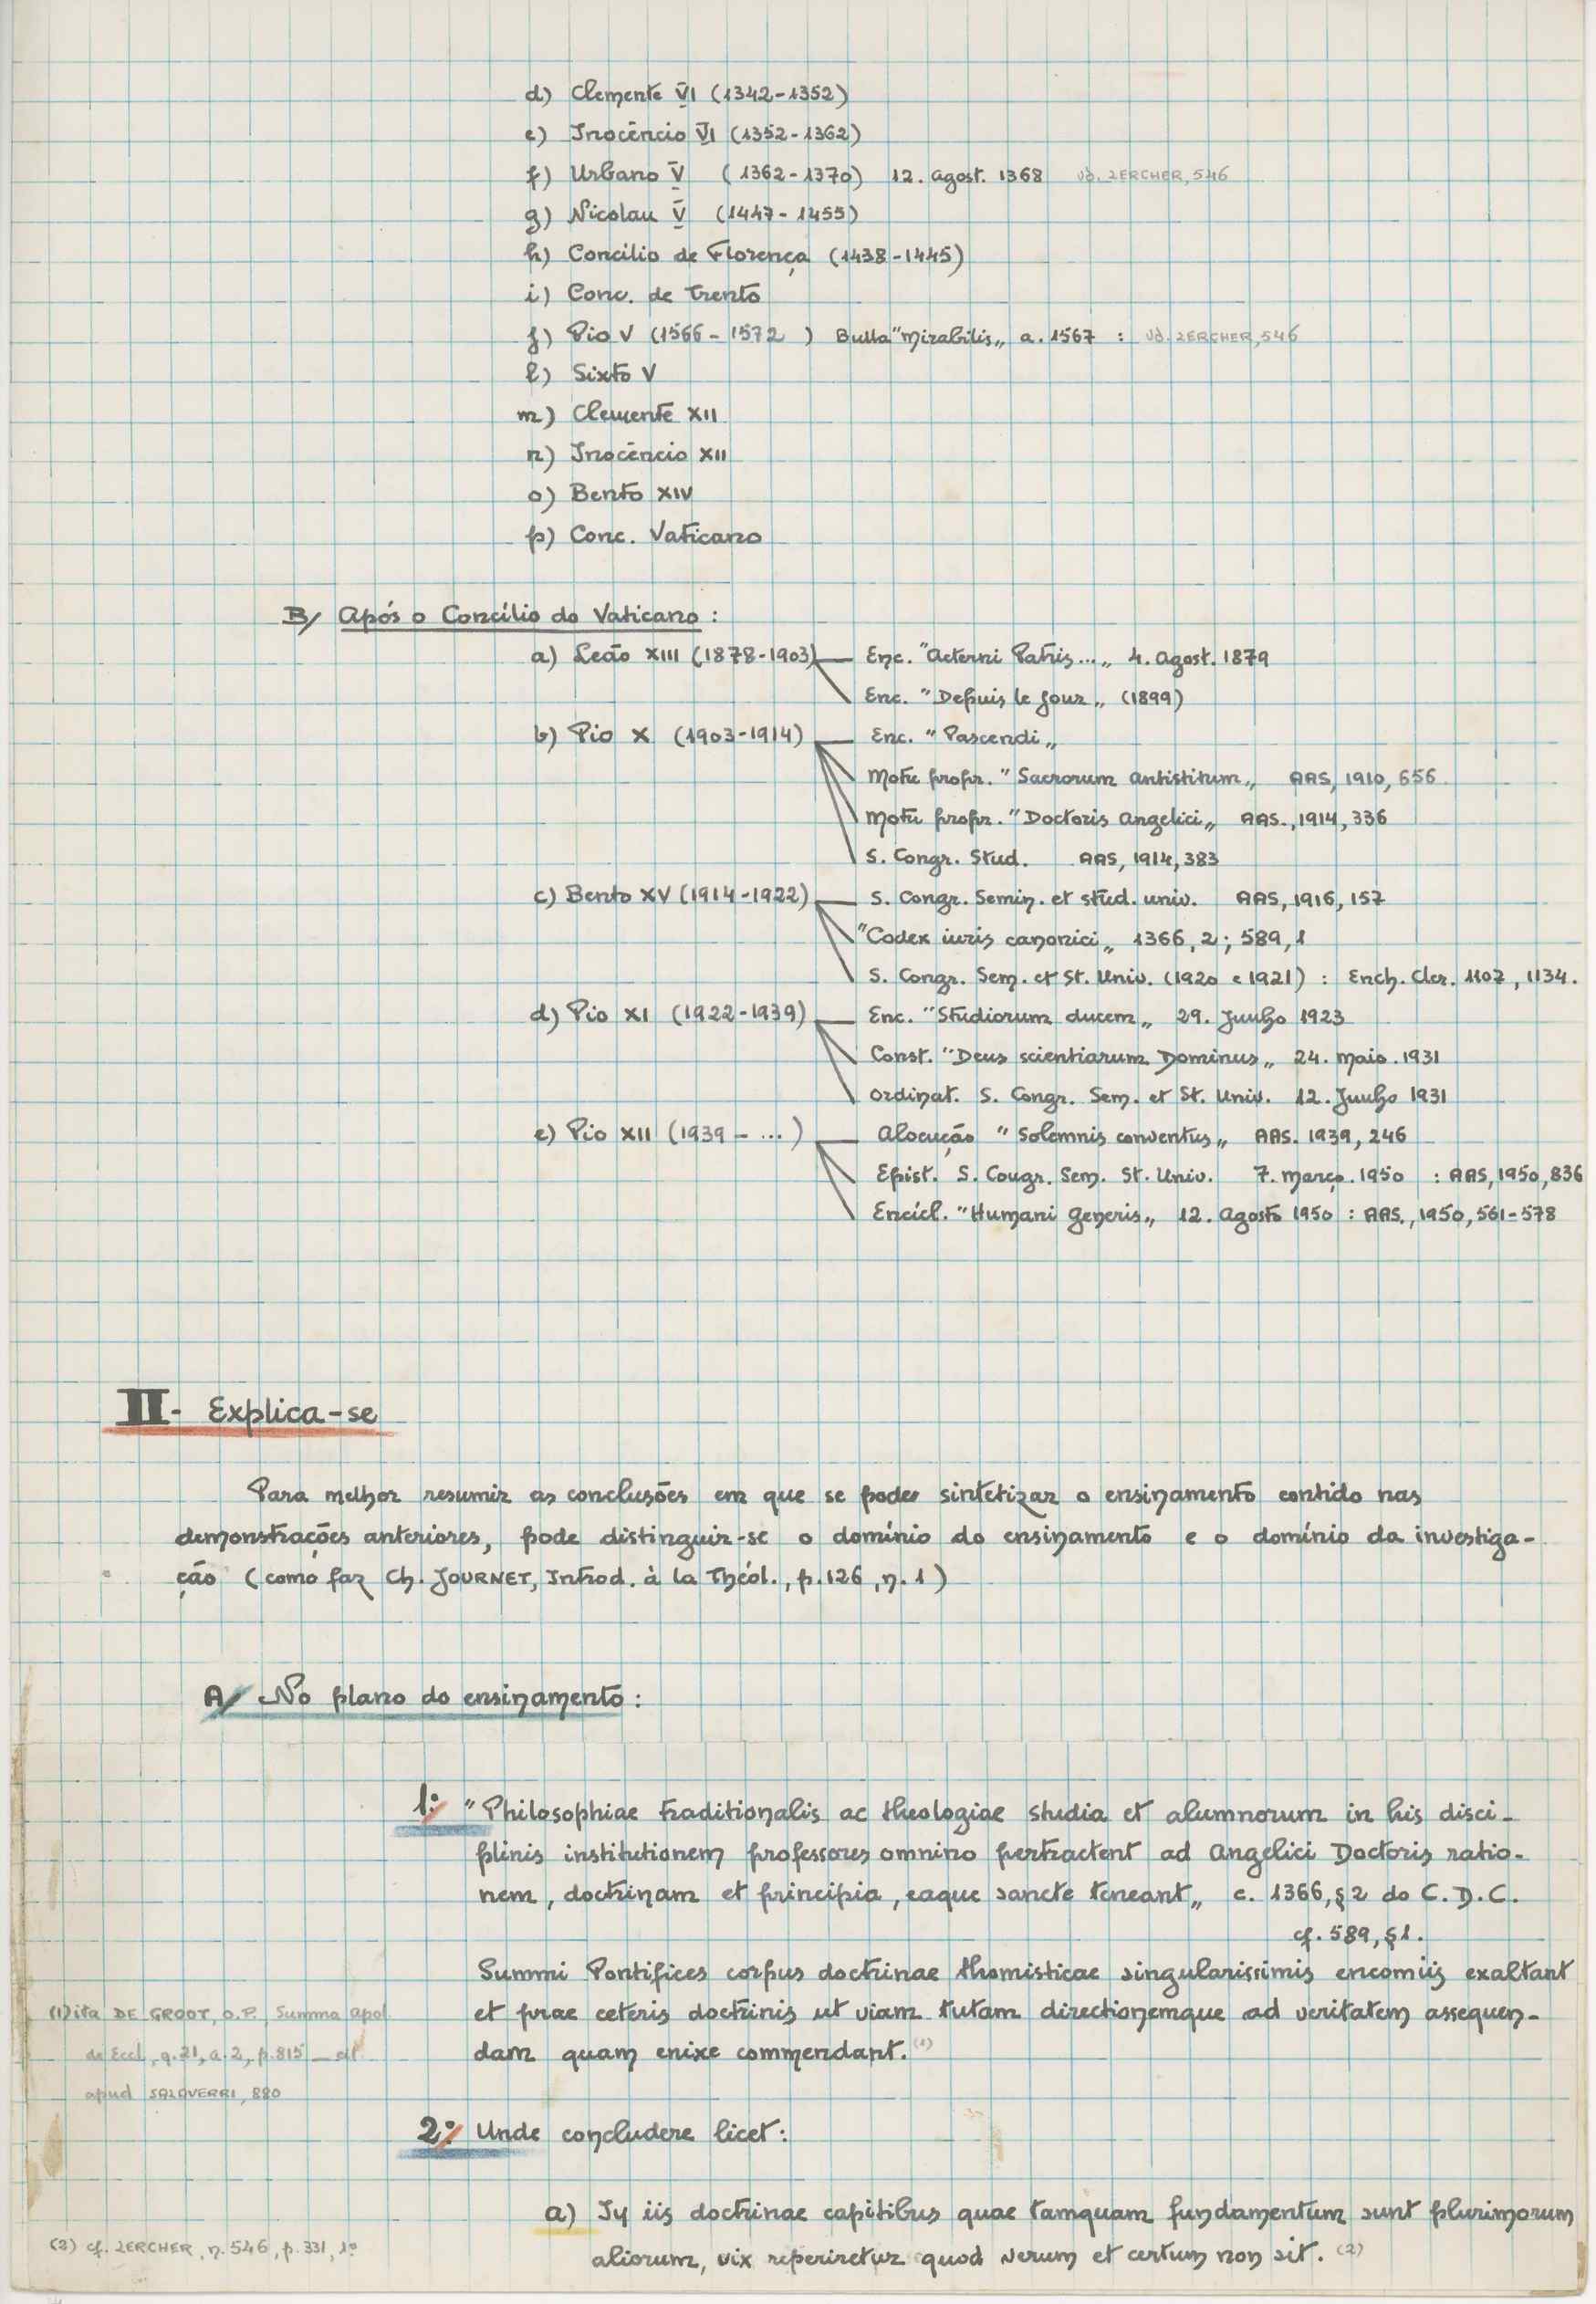 d) Clemente VI (1342-1352)
e) Inocêncio VI (1352-1362)
f) Urbano V (1362-1370) 12. agost. 1368 vd. LERCHER, 546
g) Nicolau V (1447-1455)
h) Concílio de Florença (1438-1445)
i) Conc. de Trento
j) Pio V (1566-1572) Bulla "Mirabilis„ a. 1567 : vd. LERCHER, 546
l) Sixto V
m) Clemente XII
n) Inocêncio XII
o) Bento XIV
p) Conc. Vaticano
B/ Após o Concílio do Vaticano :
a) Leão XIII (1878-1903) Enc. "Aeterni Patris...„ 4. Agost. 1879
Enc. "Depuis le jour„ (1899)
b) Pio X (1903-1914) Enc. "Pascendi„
Motu propr. "Sacrorum antistitum„ AAS, 1910, 656
Motu propr. "Doctoris Angelici„ AAS., 1914, 336
S. Congr. Stud. AAS, 1914, 383
c) Bento XV (1914-1922) S. Congr. Semin. et stud. univ. AAS, 1916, 157
"Codex iuris canonici„ 1366, 2 ; 589, 1
S. Congr. Sem. et St. Univ. (1920 e 1921) : Ench. Cler. 1107, 1134.
d) Pio XI (1922-1939) Enc. "Studiorum ducem„ 29. Junho 1923
Const. "Deus scientiarum Dominus„ 24. Maio. 1931
Ordinat. S. Congr. Sem. et St. Univ. 12. Junho 1931
e) Pio XII (1939 - ...) Alocução "Solemnis conventus„ AAS. 1939, 246
Epist. S. Congr. Sem. St. Univ. 7. Março. 1950 : AAS, 1950, 836
Encícl. "Humani generis„ 12. Agosto 1950 : AAS., 1950, 561-578
II- Explica-se
Para melhor resumir as conclusões em que se podes sintetizar o ensinamento contido nas
demonstrações anteriores, pode distinguir-se o domínio do ensinamento e o domínio da investiga-
ção (como faz Ch. JOURNET, Introd. à la Théol., p. 126, n. 1)
A/ No plano do ensinamento :
1º "Philosophiae traditionalis ac theologiae studia et alumnorum in his disci-
plinis institutionem professores omnino pertractent ad Angelici Doctoris ratio-
nem, doctrinam et principia, eaque sancte teneant„ c. 1366, §2 do C.D.C.
cf. 589, §1.
Summi Pontifices corpus doctrinae thomisticae singularissimis encomiis exaltant
et prae ceteris doctrinis ut viam tutam directionemque ad veritatem assequen-
dam quam enixe commendant. (1)
(1) ita DE GROOT, O.P., Summa apol.
de Eccl., q. 21, a. 2, p. 815 _ cit
apud SALAVERRI, 880
2º Unde concludere licet :
a) In iis doctrinae capitibus quae tamquam fundamentum sunt plurimorum
aliorum, vix reperiretur quod verum et certum non sit. (2)
(2) cf. LERCHER, n. 546, p. 331, 1º